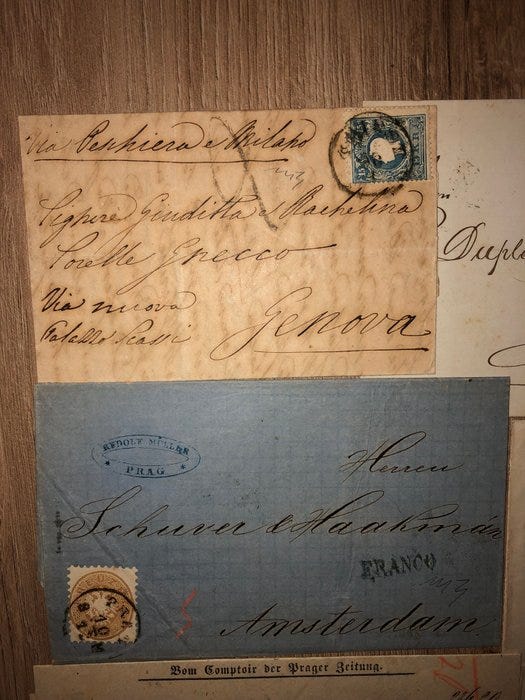 Via Peschiera e Milano
Signore Giuditta e Rachelina
Sorelle Grecco
Via nuova
Palazzo Scassi
Genova
Dupl
REDOLF MÜLLER
PRAG
Herren
Schuver & Haakman
FRANCO
Amsterdam
Vom Comptoir der Prager Zeitung.